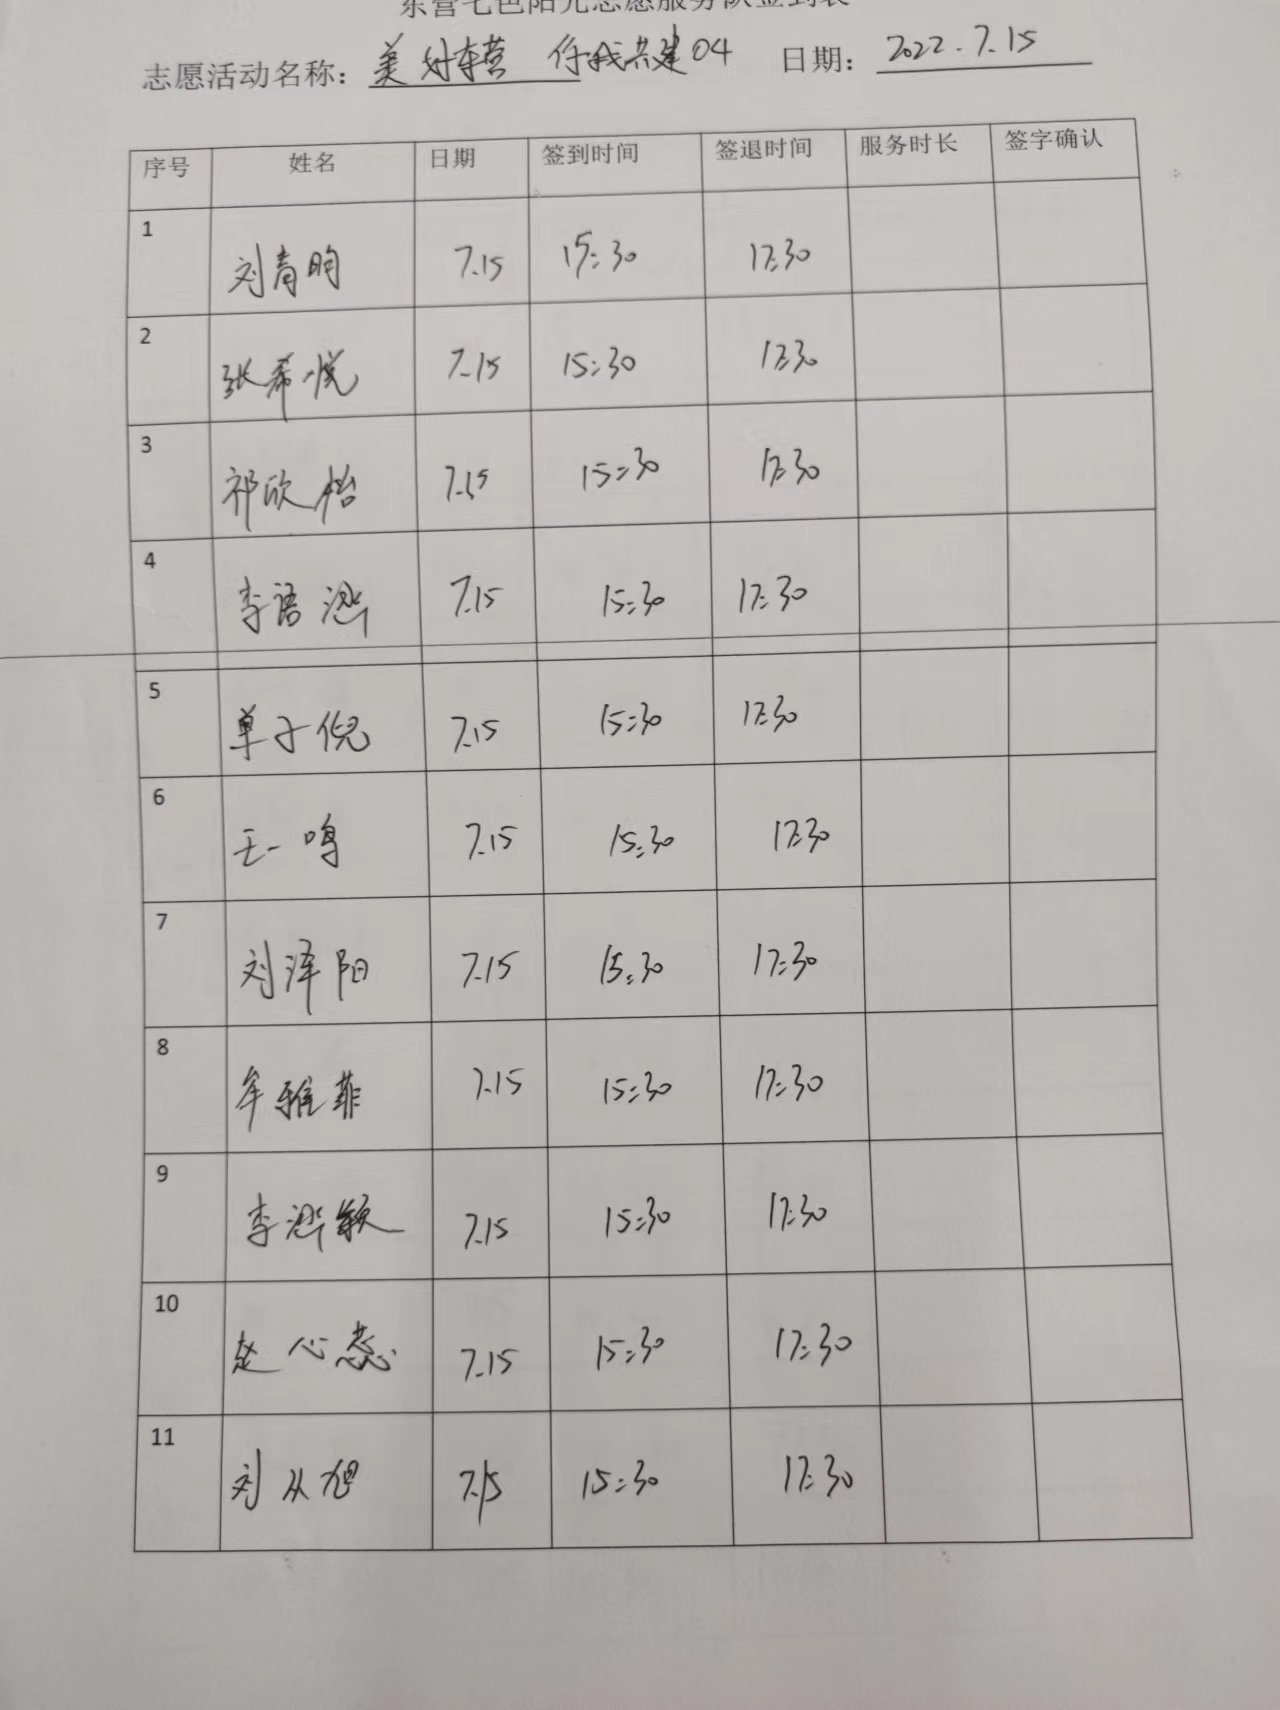 东营七色阳光志愿服务队签到表
志愿活动名称：美好东营 你我共建04 日期：2022.7.15
序号 姓名 日期 签到时间 签退时间 服务时长 签字确认
1 刘青昀 7.15 15:30 17:30
2 张希悦 7.15 15:30 17:30
3 祁欣怡 7.15 15:30 17:30
4 李语 7.15 15:30 17:30
5 单子倪 7.15 15:30 17:30
6 王一鸣 7.15 15:30 17:30
7 刘泽阳 7.15 15:30 17:30
8 牟雅菲 7.15 15:30 17:30
9 李 颖 7.15 15:30 17:30
10 赵心蕊 7.15 15:30 17:30
11 刘从旭 7.15 15:30 17:30